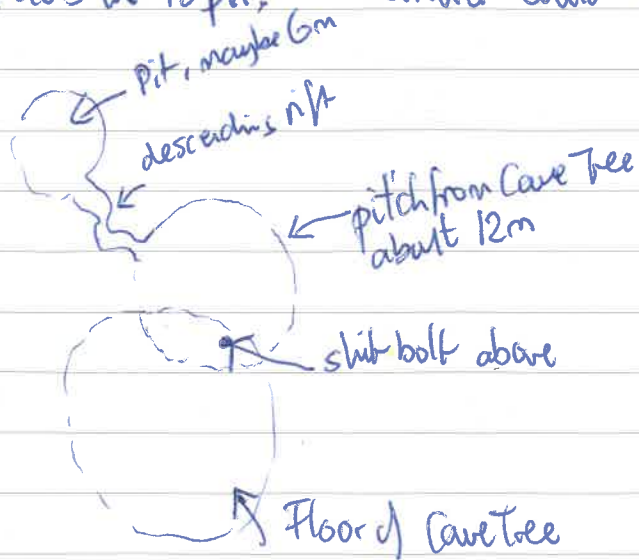 Pit, maybe 6m
descending rift
pitch from Cave Tree
about 12m
shit bolt above
Floor of Cave Tree